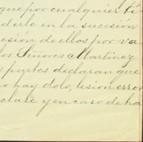 que por cualquier tí
derle en la sucesión
esión de ellos, por va
los Señores Martinez
s puntos declaran que
no hay dolo, lesion error
y en caso de ha